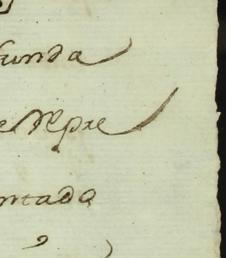 funda
e Repre
ntada